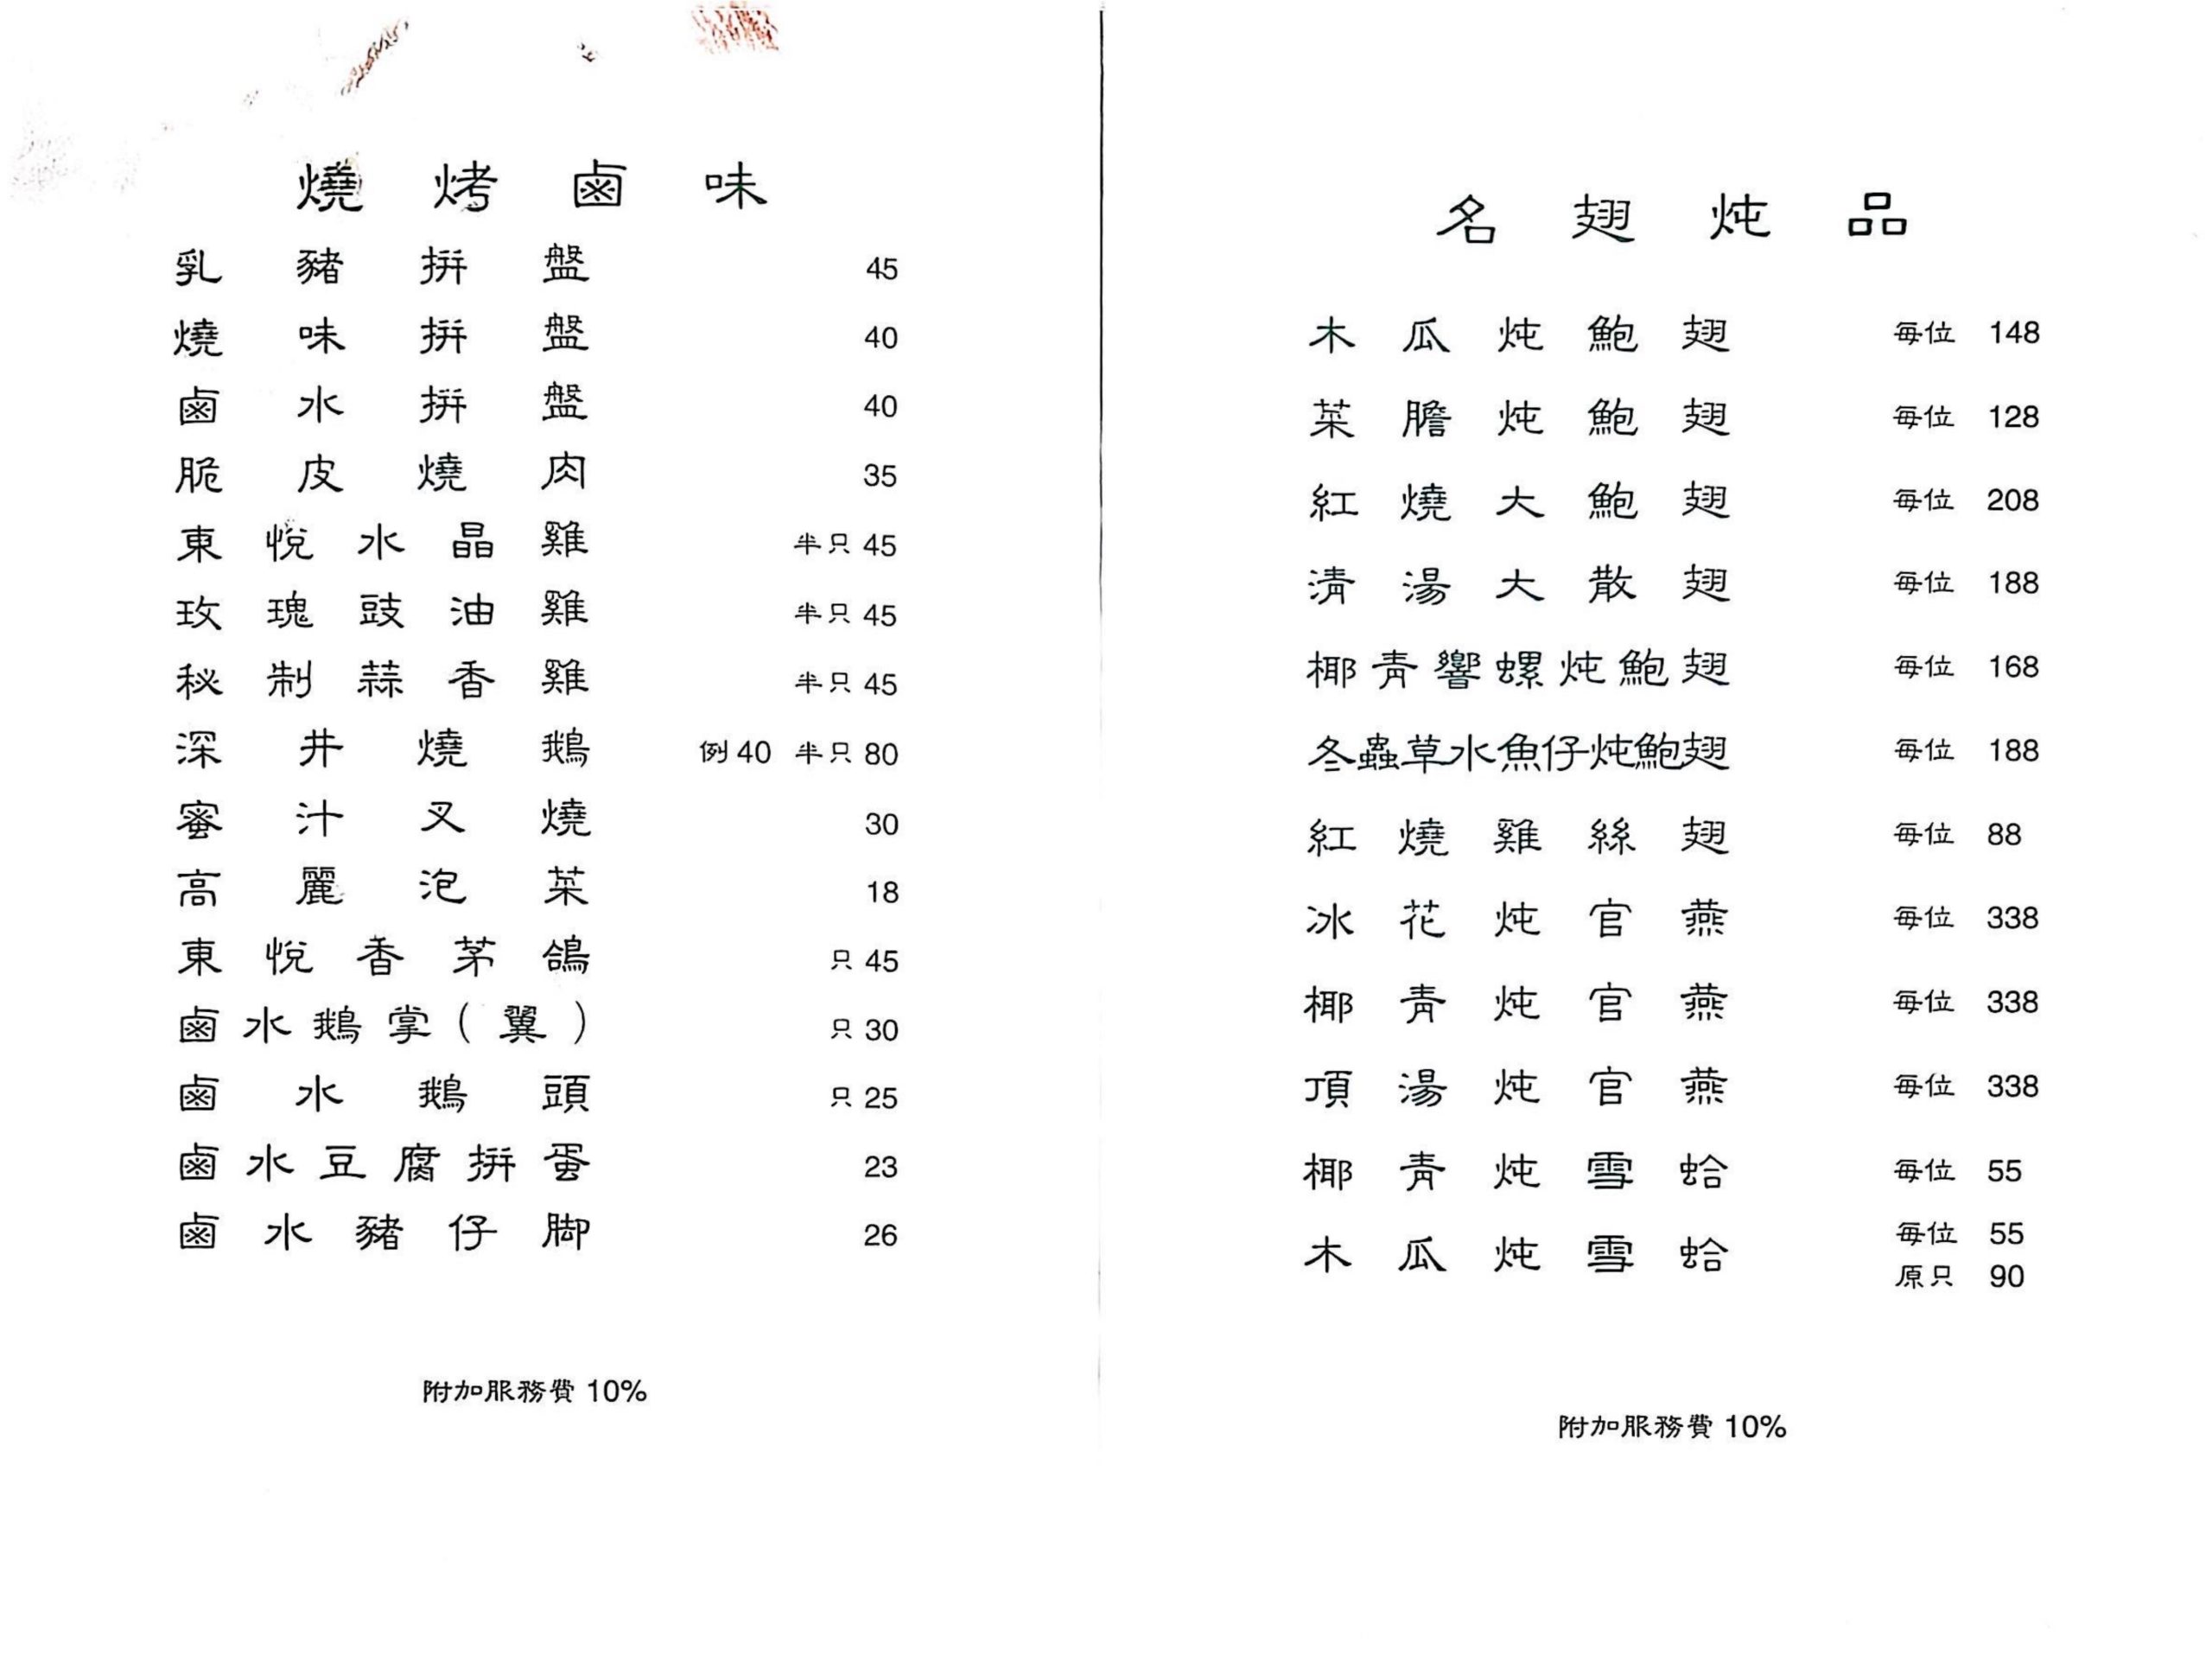 燒烤鹵味
乳豬拼盤 45
燒味拼盤 40
鹵水拼盤 40
脆皮燒肉 35
東悅水晶雞 半只 45
玫瑰豉油雞 半只 45
秘制蒜香雞 半只 45
深井燒鵝 例 40 半只 80
蜜汁叉燒 30
高麗泡菜 18
東悅香茅鴿 只 45
鹵水鵝掌（翼） 只 30
鹵水鵝頭 只 25
鹵水豆腐拼蛋 23
鹵水豬仔脚 26
附加服務費 10%
名翅炖品
木瓜炖鮑翅 每位 148
菜膽炖鮑翅 每位 128
紅燒大鮑翅 每位 208
清湯大散翅 每位 188
椰青響螺炖鮑翅 每位 168
冬蟲草水魚仔炖鮑翅 每位 188
紅燒雞絲翅 每位 88
冰花炖官燕 每位 338
椰青炖官燕 每位 338
頂湯炖官燕 每位 338
椰青炖雪蛤 每位 55
木瓜炖雪蛤 每位 55
原只 90
附加服務費 10%